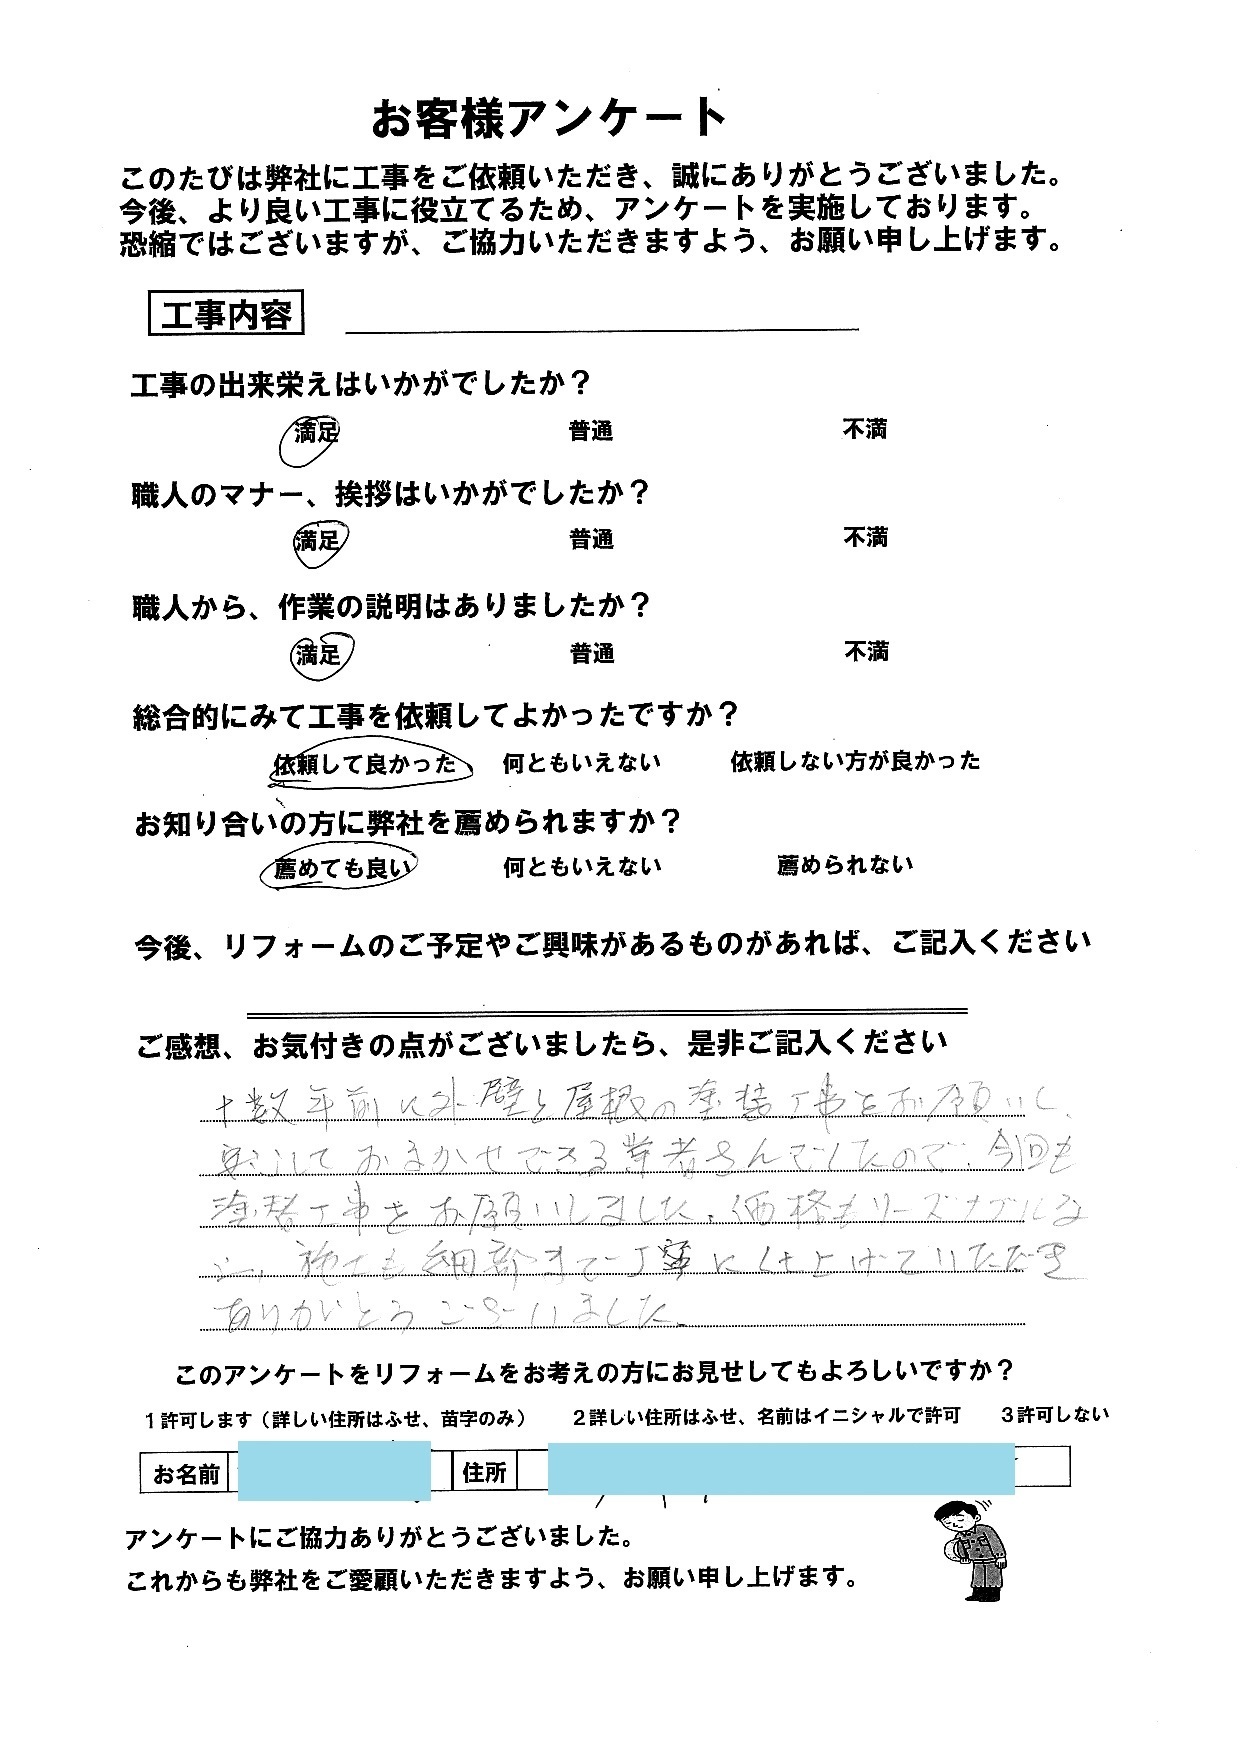 お客様アンケート
このたびは弊社に工事をご依頼いただき、誠にありがとうございました。
今後、より良い工事に役立てるため、アンケートを実施しております。
恐縮ではございますが、ご協力いただきますよう、お願い申し上げます。
工事内容
工事の出来栄えはいかがでしたか？
満足 普通 不満
職人のマナー、挨拶はいかがでしたか？
満足 普通 不満
職人から、作業の説明はありましたか？
満足 普通 不満
総合的にみて工事を依頼してよかったですか？
依頼して良かった 何ともいえない 依頼しない方が良かった
お知り合いの方に弊社を薦められますか？
薦めても良い 何ともいえない 薦められない
今後、リフォームのご予定やご興味があるものがあれば、ご記入ください
ご感想、お気付きの点がございましたら、是非ご記入ください
十数年前に外壁と屋根の塗装工事をお願いし、
安心しておまかせできる業者さんでしたので、今回も
塗替工事をお願いしました。価格もリーズナブルな
施工も細部まで丁寧に仕上げていただき
ありがとうございました。
このアンケートをリフォームをお考えの方にお見せしてもよろしいですか？
1許可します（詳しい住所はふせ、苗字のみ） 2詳しい住所はふせ、名前はイニシャルで許可 3許可しない
お名前 住所
アンケートにご協力ありがとうございました。
これからも弊社をご愛顧いただきますよう、お願い申し上げます。